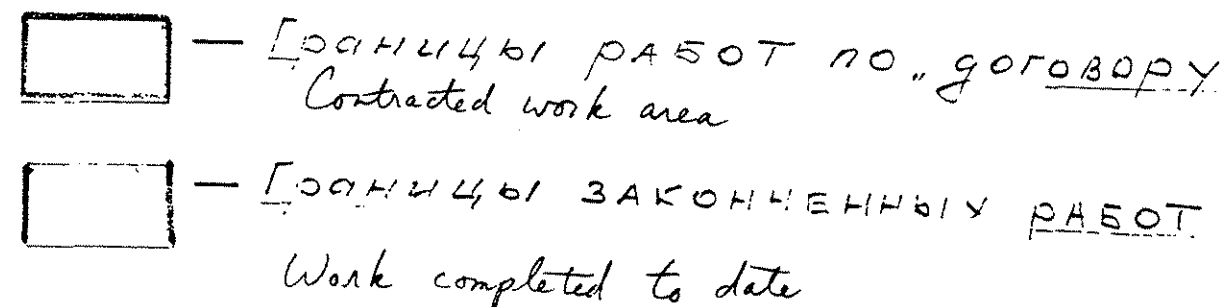 — Границы работ по „договору
Contracted work area
— Границы законченных работ
Work completed to date